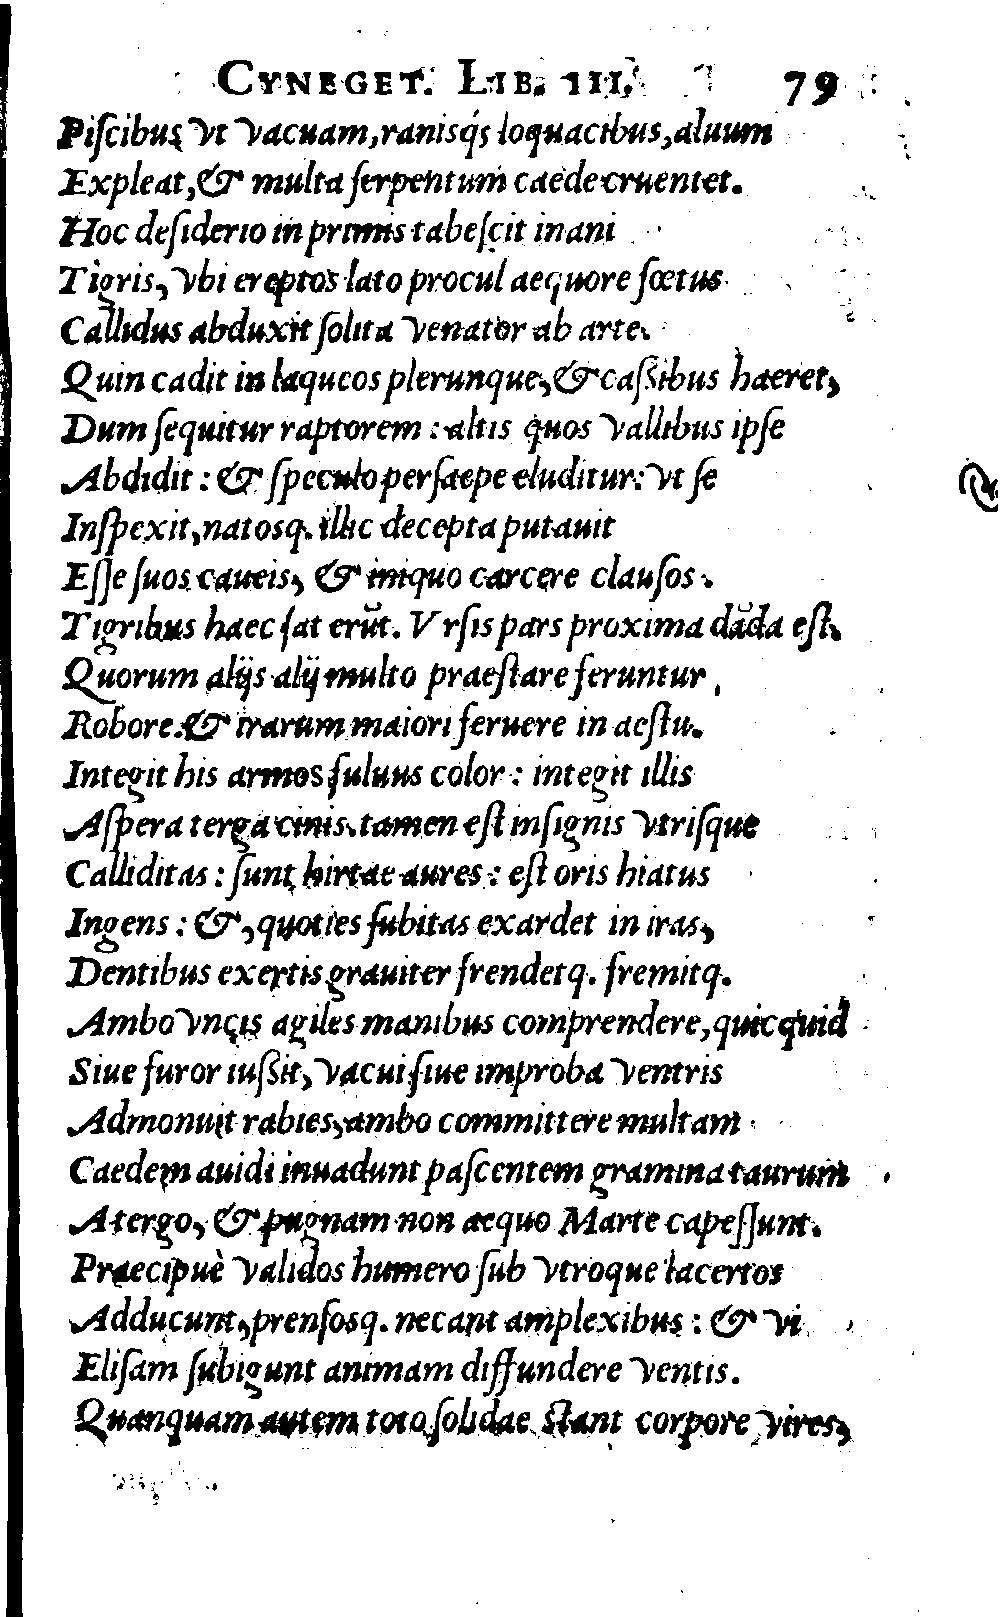 CYNEGET. LIB. III. 79
Piſcibus vt vacuam, ranisq́; loquacibus, aluum
Expleat, & multa ſerpentum caede cruentet.
Hoc deſiderio in primis tabeſcit inani
Tigris, vbi ereptos lato procul aequore fœtus
Callidus abduxit ſolita venator ab arte.
Quin cadit in laqueos plerunque, & caſsibus haeret,
Dum ſequitur raptorem: altis quos vallibus ipſe
Abdidit: & ſpeculo perſaepe eluditur: vt ſe
Inſpexit, natosq. illic decepta putauit
Eſſe ſuos caueis, & iniquo carcere clauſos.
Tigribus haec ſat erūt. Vrſis pars proxima dāda eſt.
Quorum alijs alij multo praeſtare feruntur
Robore. & irarum maiori feruere in aeſtu.
Integit his armos fuluus color: integit illis
Aſpera terga cinis. tamen eſt inſignis vtriſque
Calliditas: ſunt hirtae aures: eſt oris hiatus
Ingens: &, quoties ſubitas exardet in iras,
Dentibus exertis grauiter frendetq. fremitq.
Ambo vncis agiles manibus comprendere, quicquid
Siue furor iuſsit, vacui ſiue improba ventris
Admonuit rabies, ambo committere multam
Caedem auidi inuadunt paſcentem gramina taurum
A tergo, & pugnam non aequo Marte capeſſunt.
Praecipuè validos humero ſub vtroque lacertos
Adducunt, prenſosq. necant amplexibus: & vi
Eliſam ſubigunt animam diffundere ventis.
Quanquam autem toto ſolidae ſtant corpore vires,